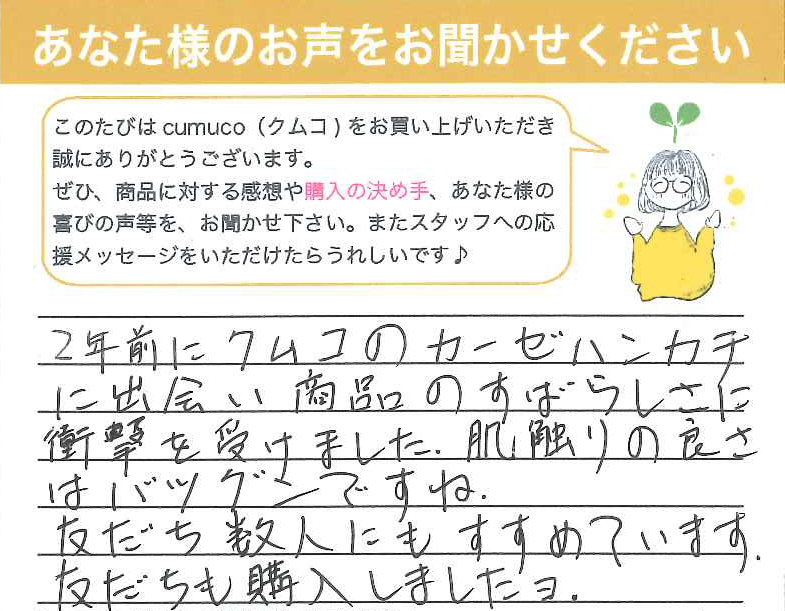 あなた様のお声をお聞かせください
このたびは cumuco（クムコ）をお買い上げいただき
誠にありがとうございます。
ぜひ、商品に対する感想や購入の決め手、あなた様の
喜びの声等を、お聞かせ下さい。またスタッフへの応
援メッセージをいただけたらうれしいです♪
2年前にクムコのカーゼハンカチ
に出会い商品のすばらしさに
衝撃を受けました.肌触りの良さ
はバツグンですね.
友だち数人にもすすめています.
友だちも購入しましたヨ.